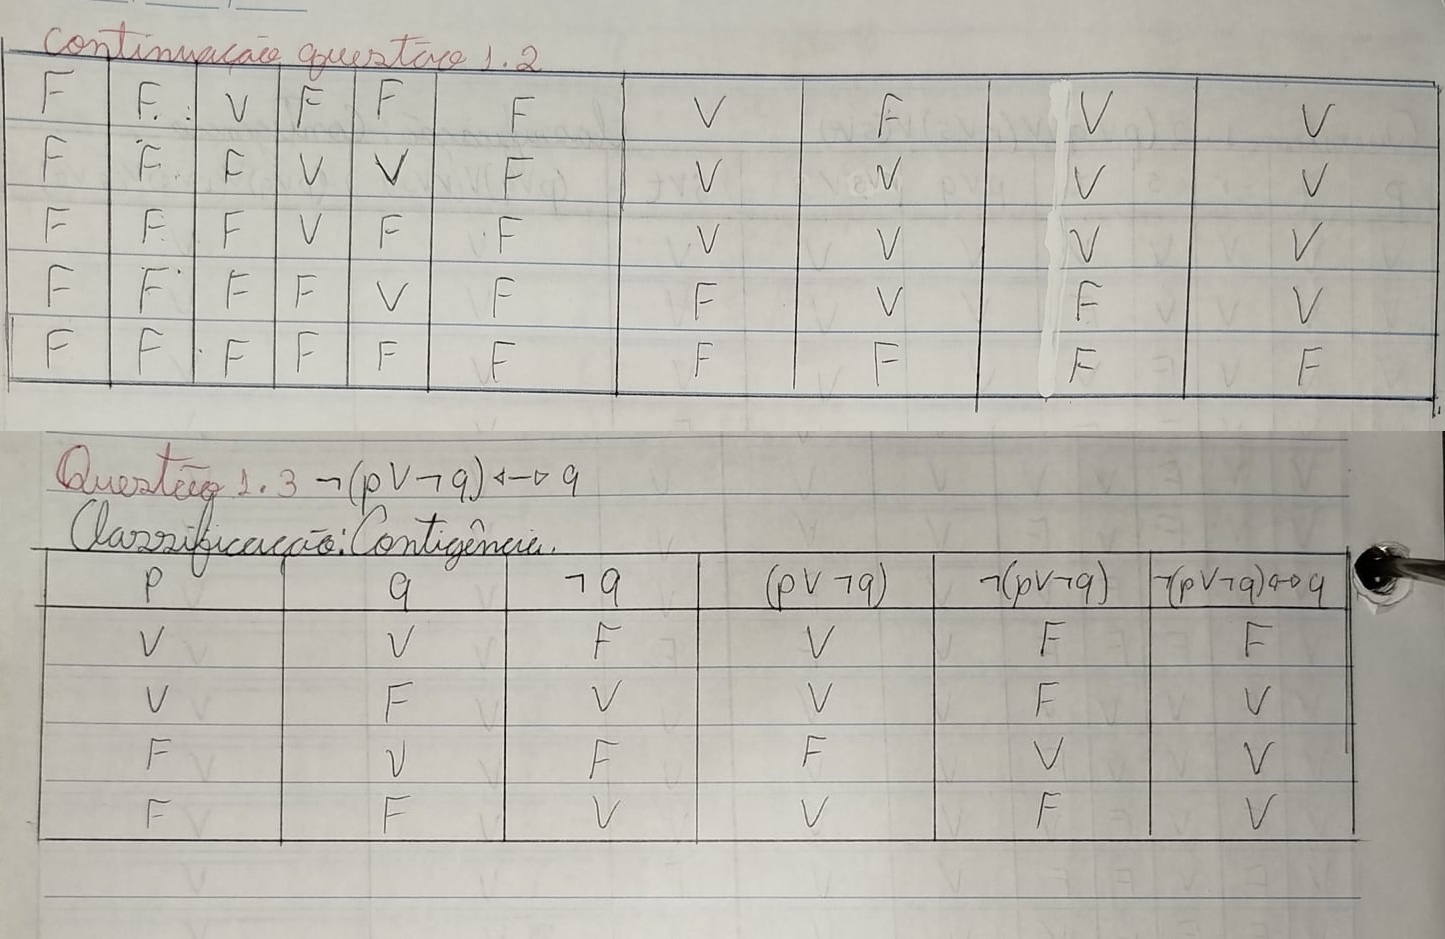 continuação questão 1.2
F F V F F F V F V V
F F F V V F V V V V
F F F V F F V V V V
F F F F V F F V F V
F F F F F F F F F F
Questão 1.3 ¬(p∨¬q)↔q
Classificação: Contigência.
p q ¬q (p∨¬q) ¬(p∨¬q) ¬(p∨¬q)↔q
V V F V F F
V F V V F V
F V F F V V
F F V V F V